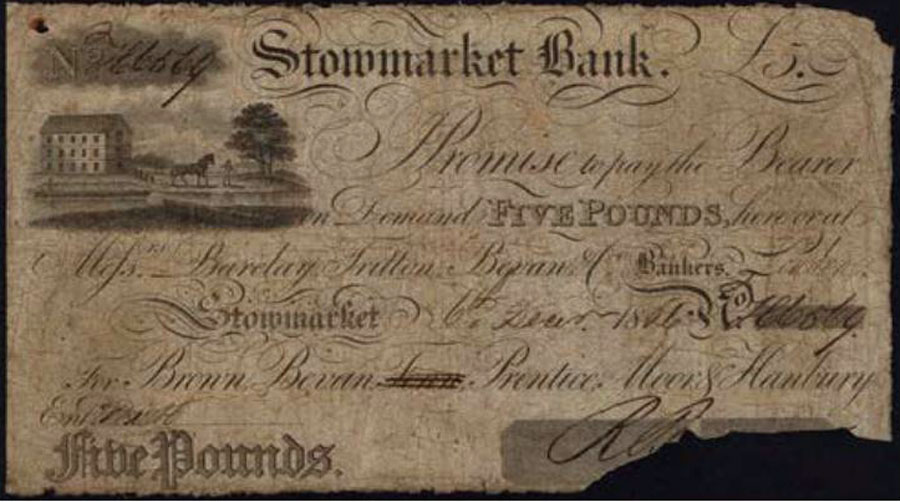 Stowmarket Bank. £5.
I Promise to pay the Bearer
on Demand FIVE POUNDS, here or at
Messrs. Barclay Tritton Bevan & Co. Bankers.
Stowmarket 6th Decr. No.
For Brown Bevan Prentice, Moor & Hanbury
Entd.
Five Pounds.